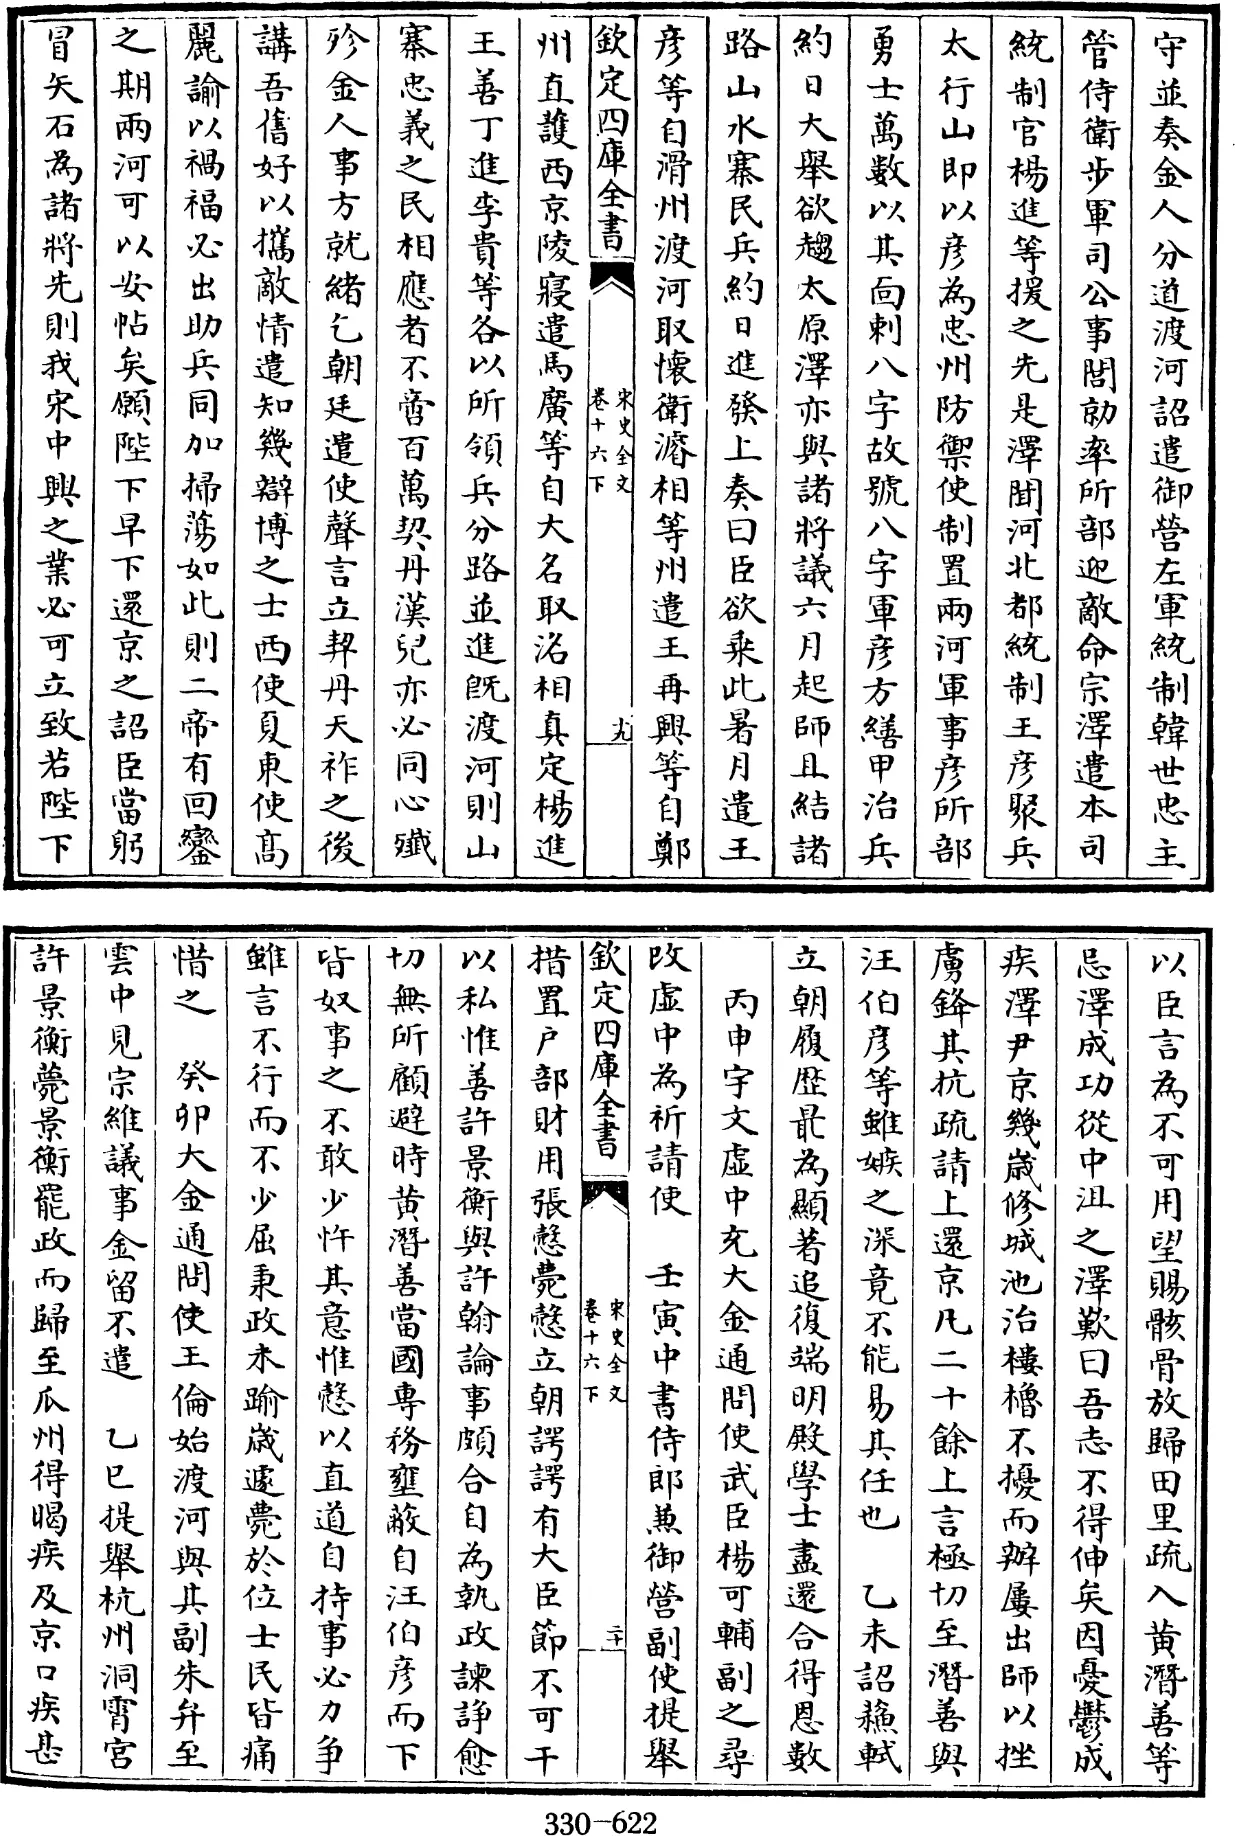 守並奏金人分道渡河詔遣御營左軍統制韓世忠主
管侍衛步軍司公事閭勍率所部迎敵命宗澤遣本司
統制官楊進等援之先是澤聞河北都統制王彦聚兵
太行山即以彦為忠州防禦使制置兩河軍事彦所部
勇士萬數以其面刺八字故號八字軍彦方繕甲治兵
約日大舉欲趨太原澤亦與諸將議六月起師且結諸
路山水寨民兵約日進發上奏曰臣欲乗此暑月遣王
彦等自滑州渡河取懷衛濬相等州遣王再興等自鄭
欽定四庫全書
宋史全文
卷十六下
九
州直護西京陵寢遣馬廣等自大名取洺相真定楊進
王善丁進李貴等各以所領兵分路並進既渡河則山
寨忠義之民相應者不啻百萬契丹漢兒亦必同心殱
殄金人事方就緒乞朝廷遣使聲言立契丹天祚之後
講吾舊好以攜敵情遣知幾辯博之士西使夏東使髙
麗諭以禍福必出助兵同加掃蕩如此則二帝有回鑾
之期兩河可以安帖矣願陛下早下還京之詔臣當躬
冒矢石為諸將先則我宋中興之業必可立致若陛下
以臣言為不可用望賜骸骨放歸田里疏入黄潛善等
忌澤成功從中沮之澤歎曰吾志不得伸矣因憂鬱成
疾澤尹京幾歳修城池治樓櫓不擾而辦屢出師以挫
虜鋒其抗疏請上還京凡二十餘上言極切至潛善與
汪伯彦等雖嫉之深竟不能易其任也　乙未詔蘓軾
立朝履歴最為顯著追復端明殿學士盡還合得恩數
丙申宇文虚中充大金通問使武臣楊可輔副之尋
改虚中為祈請使　壬寅中書侍郎兼御營副使提舉
欽定四庫全書
宋史全文
卷十六下
二十
措置户部財用張慤薨慤立朝諤諤有大臣節不可干
以私惟善許景衡與許翰論事頗合自為執政諫諍愈
切無所顧避時黄潛善當國專務壅蔽自汪伯彦而下
皆奴事之不敢少忤其意惟慤以直道自持事必力争
雖言不行而不少屈秉政未踰歳遽薨於位士民皆痛
惜之　癸卯大金通問使王倫始渡河與其副朱弁至
雲中見宗維議事金留不遣　乙巳提舉杭州洞霄宮
許景衡薨景衡罷政而歸至瓜州得暍疾及京口疾甚
330-622